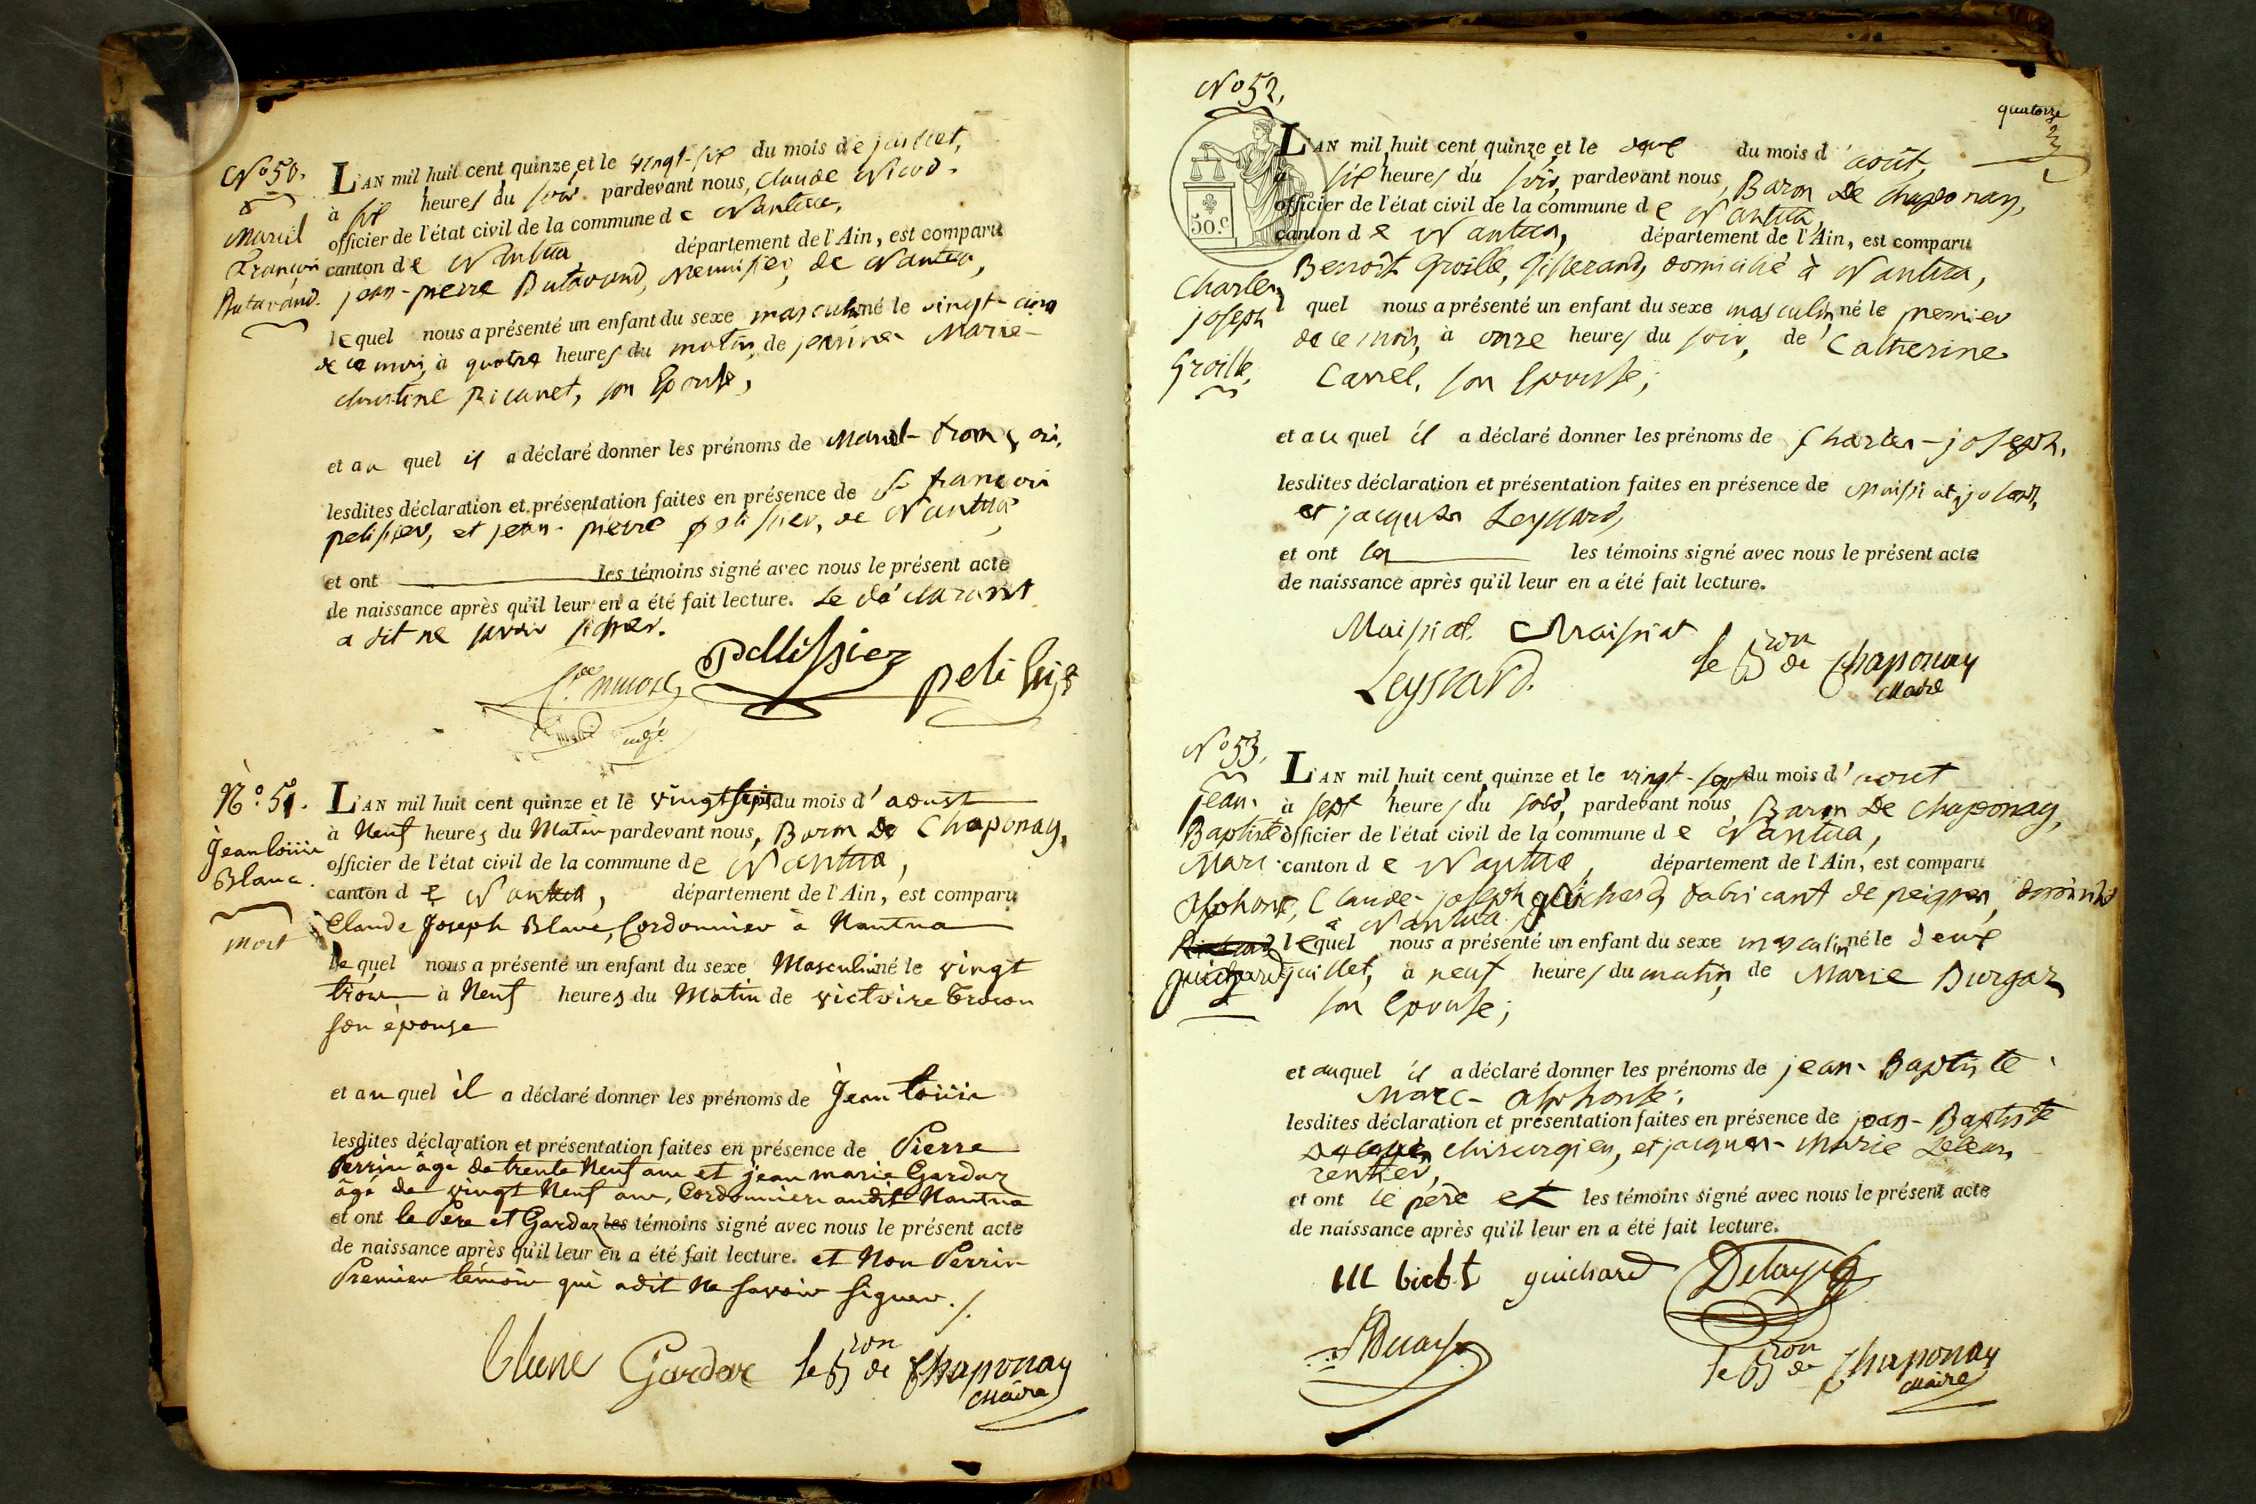 No 50.
Marcel
françois
Butavand.
L'AN mil huit cent quinze, et le vingt-six du mois de juillet,
à six heures du soir pardevant nous, Claude Nicod.
officier de l'état civil de la commune de Nantua,
canton de Nantua département de l'Ain, est comparu
jean-pierre Butavand, Menuisier, de Nantua,
lequel nous a présenté un enfant du sexe masculin né le vingt-cinq
de ce mois, à quatre heures du matin, de Marie-
christine Ricanet, son Epouse,
et au quel il a déclaré donner les prénoms de Marcel-françois,
lesdites déclaration et présentation faites en présence de françois
pelissier, et jean-pierre pelissier, de Nantua,
et ont les témoins signé avec nous le présent acte
de naissance après qu'il leur en a été fait lecture. Le déclarant
a dit ne savoir signer.
Pellissier
N.o 51.
Jean louis
Blanc.
Mort
L'AN mil huit cent quinze et le vingt sept du mois d'aoust
à Neuf heures du Matin pardevant nous, Baron De Chaponay,
officier de l'état civil de la commune de Nantua,
canton de Nantua, département de l'Ain, est comparu
Claude Joseph Blanc, Cordonnier à Nantua
le quel nous a présenté un enfant du sexe Masculin né le vingt
trois à Neuf heures du Matin de victoire
son épouse
et au quel il a déclaré donner les prénoms de Jean louis
lesdites déclaration et présentation faites en présence de Pierre
Perrin âgé de trente Neuf ans et jean marie Gardaz
âgé de vingt Neuf ans, Cordonniers audit Nantua
et ont le Pere et Gardaz les témoins signé avec nous le présent acte
de naissance après qu'il leur en a été fait lecture. et Non Perrin
Premier témoin qui a dit Ne savoir signer ./.
Blanc Gardaz le Bron de Chaponay
Maire
No 52,
quatorze
50.c
Charles
joseph
Groille,
L'AN mil huit cent quinze et le deux du mois d'août,
à six heures du soir, pardevant nous, Baron De Chaponay,
officier de l'état civil de la commune de Nantua,
canton de Nantua, département de l'Ain, est comparu
Benoît Groille, Tisserand, domicilié à Nantua,
l quel nous a présenté un enfant du sexe masculin né le premier
de ce mois, à onze heures du soir, de Catherine
Carrel, son Epousse;
et au quel il a déclaré donner les prénoms de Charles-joseph,
lesdites déclaration et présentation faites en présence de Maissiat,
et jacques Leyssard,
et ont les témoins signé avec nous le présent acte
de naissance après qu'il leur en a été fait lecture.
Maissiat Maissiat
Leyssard. le Bron de Chaponay
Maire
No 53,
jean-
Baptiste
Marc-
alphonse,
guichard
L'AN mil huit cent quinze et le vingt-sept du mois d'aout
à sept heures du soir, pardevant nous Baron De Chaponay,
officier de l'état civil de la commune de Nantua,
canton de Nantua, département de l'Ain, est comparu
Claude-joseph guichard, fabricant de peignes, domicilié
à Nantua
lequel nous a présenté un enfant du sexe masculin né le deux
juillet, à neuf heures du matin, de Marie Burgaz
son Epouse;
et auquel il a déclaré donner les prénoms de jean-Baptiste
Marc-alphonse;
lesdites déclaration et présentation faites en présence de jean-Baptiste
chirurgien, et jacques-Marie
rentier,
et ont le père et les témoins signé avec nous le présent acte
de naissance après qu'il leur en a été fait lecture.
guichard
le Bron de Chaponay
Maire